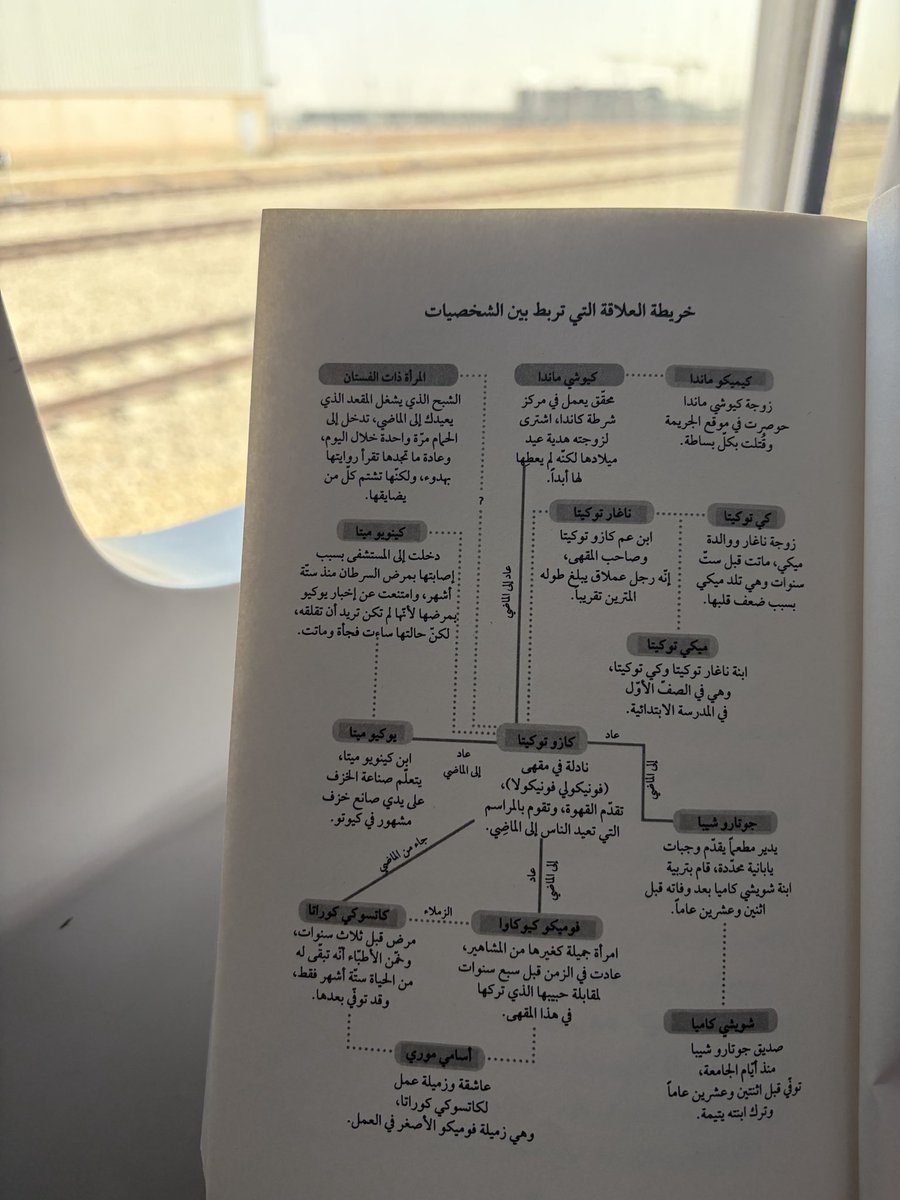 خريطة العلاقة التي تربط بين الشخصيات
كيميكو ماندا
زوجة كيوشي ماندا
حوصرت في موقع الجريمة
وقُتلت بكلّ بساطة.
كيوشي ماندا
محقّق يعمل في مركز
شرطة كاندا، اشترى
لزوجته هدية عيد
ميلادها لكنّه لم يعطها
لها أبداً.
المرأة ذات الفستان
الشبح الذي يشغل المقعد الذي
يعيدك إلى الماضي، تدخل إلى
الحمام مرّة واحدة خلال اليوم،
وعادة ما تجدها تقرأ روايتها
بهدوء، ولكنّها تشتم كلّ من
يضايقها.
؟
كي توكيتا
زوجة ناغار ووالدة
ميكي، ماتت قبل ستّ
سنوات وهي تلد ميكي
بسبب ضعف قلبها.
ناغار توكيتا
ابن عم كازو توكيتا
وصاحب المقهى،
إنّه رجل عملاق يبلغ طوله
المترين تقريباً.
كينويو ميتا
دخلت إلى المستشفى بسبب
إصابتها بمرض السرطان منذ ستّة
أشهر، وامتنعت عن إخبار يوكيو
بمرضها لأنّها لم تكن تريد أن تقلقه،
لكنّ حالتها ساءت فجأة وماتت.
عاد إلى الماضي
ميكي توكيتا
ابنة ناغار توكيتا وكي توكيتا،
وهي في الصفّ الأوّل
في المدرسة الابتدائية.
كازو توكيتا
نادلة في مقهى
(فونيكولي فونيكولا)،
تقدّم القهوة، وتقوم بالمراسم
التي تعيد الناس إلى الماضي.
عاد
إلى الماضي
يوكيو ميتا
ابن كينويو ميتا،
يتعلّم صناعة الخزف
على يدي صانع خزف
مشهور في كيوتو.
عاد
إلى الماضي
جوتارو شيبا
يدير مطعماً يقدّم وجبات
يابانية محدّدة، قام بتربية
ابنة شويشي كاميا بعد وفاته قبل
اثنين وعشرين عاماً.
جاء من الماضي
عاد
إلى الماضي
فوميكو كيوكاوا
امرأة جميلة كغيرها من المشاهير،
عادت في الزمن قبل سبع سنوات
لمقابلة حبيبها الذي تركها
في هذا المقهى.
الزملاء
كاتسوكي كوراتا
مرض قبل ثلاث سنوات،
وخمّن الأطبّاء أنّه تبقّى له
من الحياة ستّة أشهر فقط،
وقد توفّي بعدها.
شويشي كاميا
صديق جوتارو شيبا
منذ أيّام الجامعة،
توفّي قبل اثنتين وعشرين عاماً
وترك ابنته يتيمة.
أسامي موري
عاشقة وزميلة عمل
لكاتسوكي كوراتا،
وهي زميلة فوميكو الأصغر في العمل.